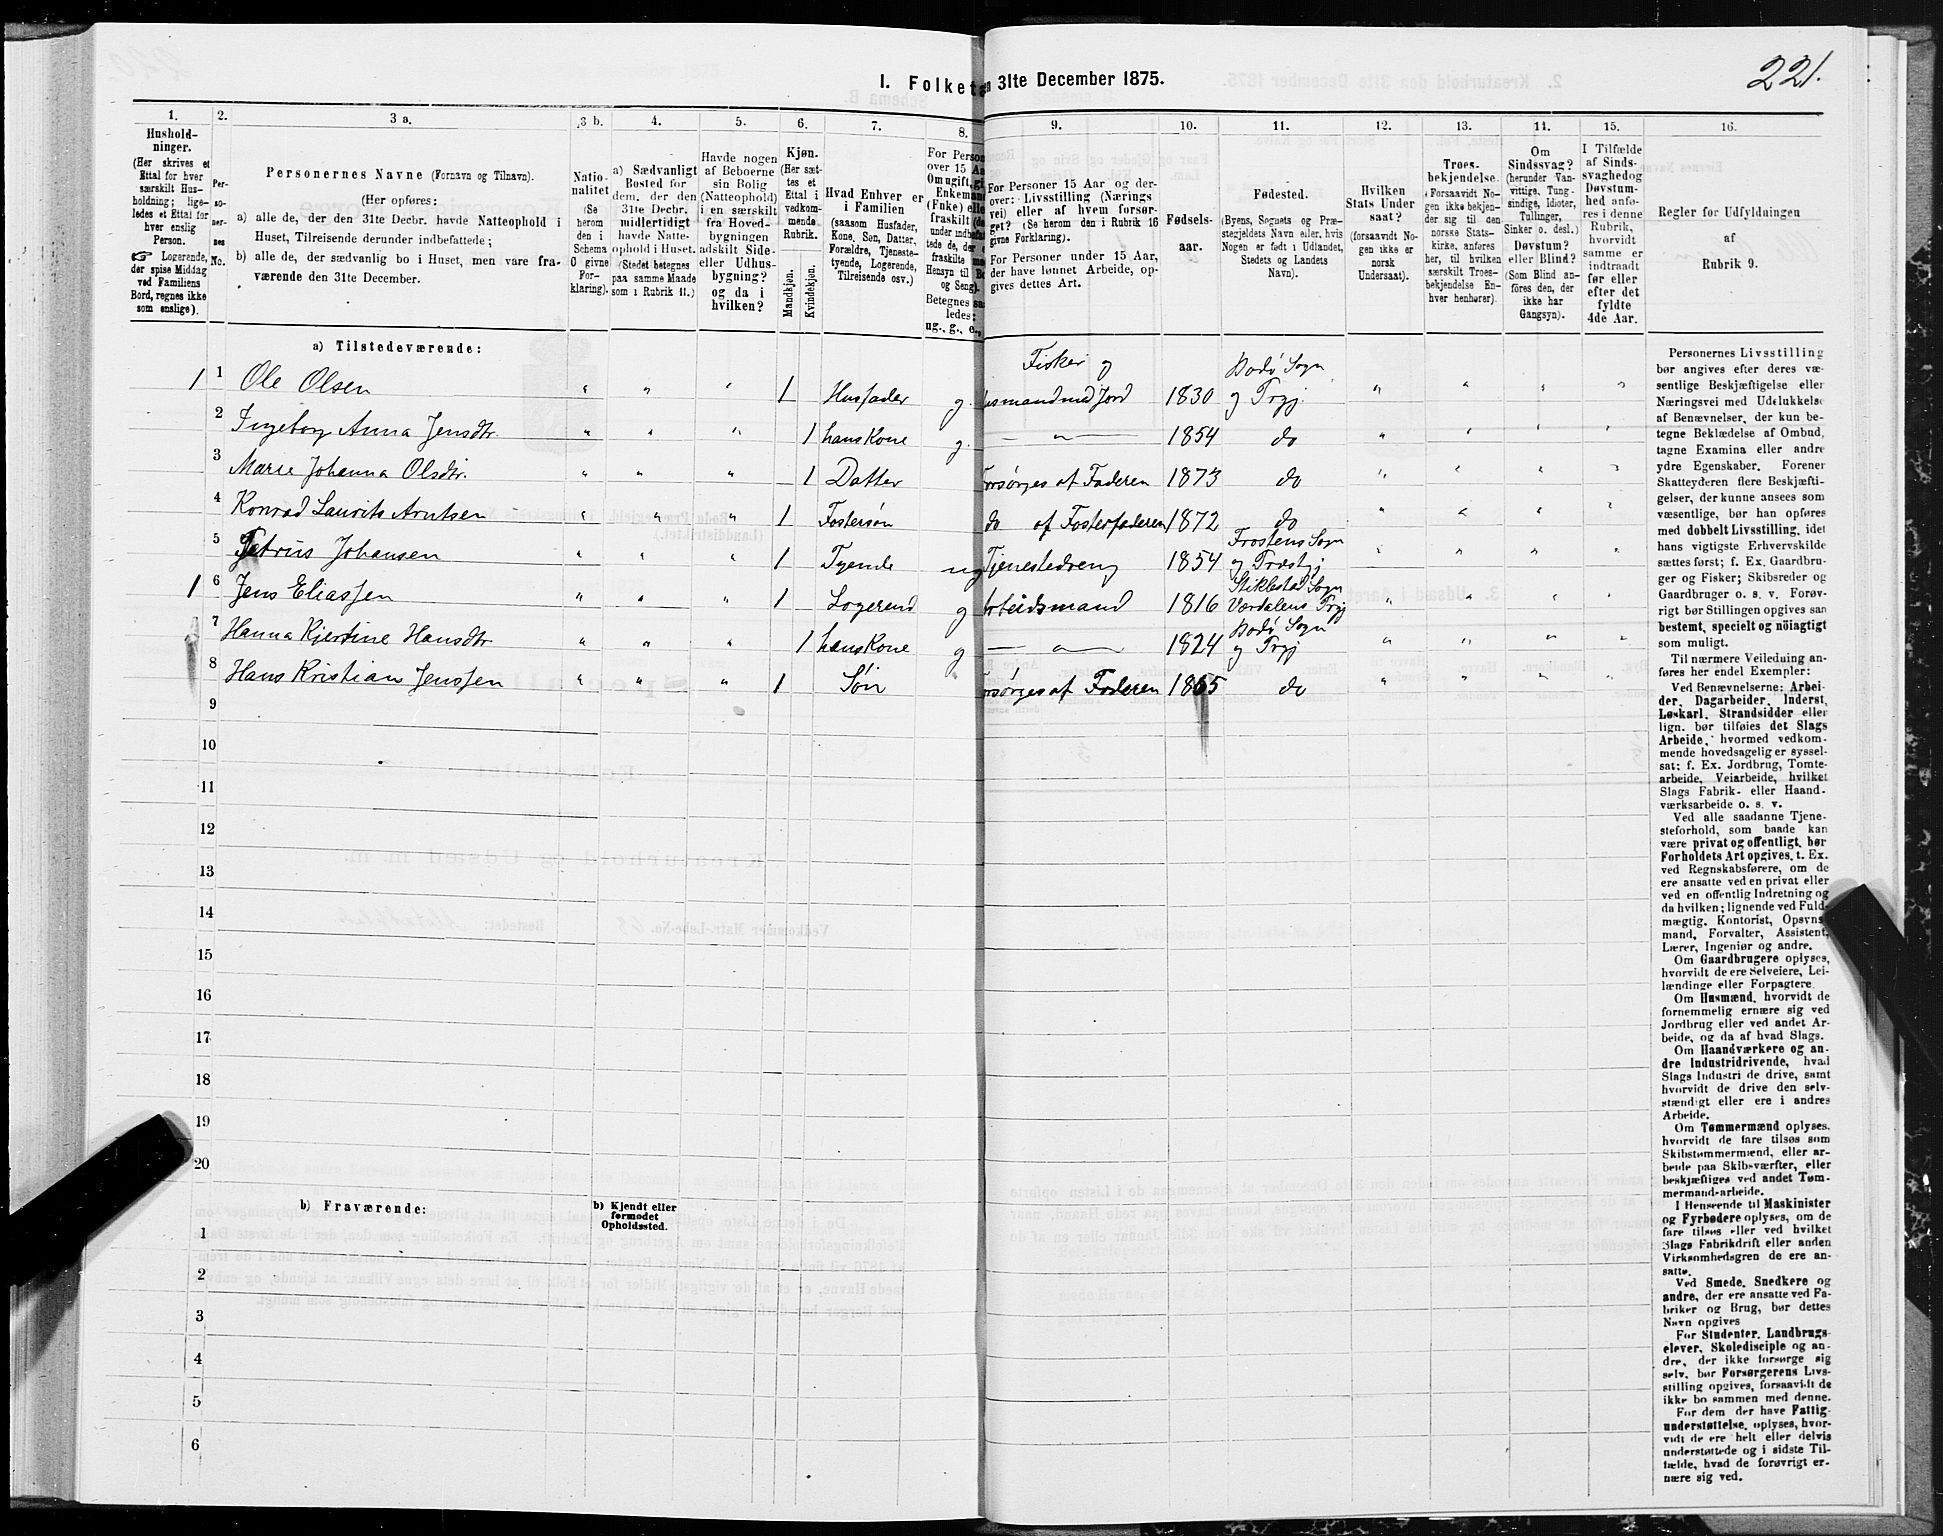 221.
I. Folketæ n 31te December 1875.
1. 2. 3 a. 3 b. 4. 5. 6. 7. 8. 9. 10. 11. 12. 13. 14. 15. 16.
Hushold-
ninger.
(Her skrives et
Ettal for hver
særskilt Hus-
holdning; lige-
ledes et Ettal for
hver enslig
Person.
☞ Logerende,
der spise Middag
ved Familiens
Bord, regnes ikke
som enslige).
Per-
so-
ner-
nes
No.
Personernes Navne (Fornavn og Tilnavn).
(Her opføres:
a) alle de, der den 31te Decbr. havde Natteophold i
Huset, Tilreisende derunder indbefattede;
b) alle de, der sædvanlig bo i Huset, men vare fra-
værende den 31te December.
Natio-
nalitet
(Se
herom
den i
Schema
C givne
For-
klaring).
a) Sædvanligt
Bosted for
dem, der den
31te Decbr.
midlertidigt
havde Natte-
ophold i Huset.
(Stedet betegnes
paa samme Maade
som i Rubrik 11.)
Havde nogen
af Beboerne
sin Bolig
(Natteophold)
i en særskilt
fra Hoved-
bygningen
adskilt Side-
eller Udhus-
bygning?
og da i
hvilken?
Kjøn.
(Her sæt-
tes et
Ettal i
vedkom-
mende
Rubrik.
Mandkjøn.
Kvindekjøn.
Hvad Enhver er
i Familien
(saasom Husfader,
Kone, Søn, Datter,
Forældre, Tjeneste-
tyende, Logerende,
Tilreisende osv.)
For Person
over 15 Aa
Om ugift, gi
Enkeman
(Fnke) elle
fraskilt (de
under indbefat-
tede de, der e
fraskilte
Hensyn til Bo
og Seng).
Betegnes saa
ledes:
ug., g., e.,
For Personer 15 Aar og der-
over: Livsstilling (Nærings
vei) eller af hvem forsør-
get? (Se herom den i Rubrik 16
givne Forklaring).
For Personer under 15 Aar,
der have lønnet Arbeide, op-
gives dettes Art.
Fødsels-
aar.
Fødested.
(Byens, Sognets og Præ-
stegjeldets Navn eller, hvis
Nogen er født i Udlandet,
Stedets og Landets
Navn).
Hvilken
Stats Under
saat?
(forsaavidt No-
gen ikke er
norsk
Undersaat).
Troes-
bekjendelse.
(Forsaavidt No-
gen ikke bekjen-
der sig til den
norske Stats-
kirke, anføres
her, til hvilken
særskilt Troes-
bekjendelse En-
hver henhører).
Om
Sindssvag?
(herunder Van-
vittige, Tung-
sindige, Idioter,
Tullinger,
Sinker o. desl.)
Døvstum?
eller Blind?
(Som Blind an-
föres den, der
ikke har
Gangsyn).
I Tilfælde
af Sinds-
svaghed og
Døvstum-
hed anfø-
res i denne
Rubrik,
hvorvidt
samme er
indtraadt
før eller
efter det
fyldte
4de Aar.
Regler for Udfyldningen
af
Rubrik 9.
a) Tilstedeværende:
1 1 Ole Olsen " " " 1 Husfader g. Fisker og usmand med Jord 1830 Bodø Sogn og Prgj. " " " "
2 Ingeborg Anna Jensdtr. " " " 1 hans Kone g. — " — 1854 do " " " "
3 Marie Johanna Olsdtr. " " " 1 Datter orsørges af Faderen 1873 do " " " "
4 Konrad Laurits Arntsen " " " 1 Fostersøn do af Fosterfaderen 1872 do " " " "
5 Petrus Johansen " " " 1 Tyende ug Tjenestedreng 1854 Frostens Sogn og Præstgj " " " "
1 6 Jens Eliassen " " " 1 Logerend g rbeidsmand 1816 Stiklestad Sogn Værdalens Prgj " " " "
7 Hanna Kjerstine Hansdtr " " " 1 hans Kone g — " — 1824 Bodø Sogn og Prgj " " " "
8 Hans Kristian Jenssen " " " 1 Søn orsørges af Faderen 1865 do " " " "
9
10
11
12
13
14
15
16
17
18
19
20
b) Fraværende:
b) Kjendt eller
formodet
Opholdssted.
1
2
3
4
5
6
Personernes Livsstilling
bør angives efter deres væ-
sentlige Beskjæftigelse eller
Næringsvei med Udelukkelse
af Benævnelser, der kun be-
tegne Beklædelse af Ombud,
tagne Examina eller andre
ydre Egenskaber. Forener
Skatteyderen flere Beskjæfti-
gelser, der kunne ansees som
væsentlige, bør han opføres
med dobbelt Livsstilling, idet
hans vigtigste Erhvervskilde
sættes først; f. Ex. Gaardbru-
ger og Fisker; Skibsreder og
Gaardbruger o. s. v. Forøv-
rigt bør Stillingen opgives saa
bestemt, specielt og nöiagtigt
som muligt.
Til nærmere Veiledning an-
føres her endel Exempler:
Ved Benævnelserne: Arbei-
der, Dagarbeider, Inderst,
Løskarl, Strandsidder eller
lign. bør tilføies det Slags
Arbeide, hvormed vedkom-
mende hovedsagelig er syssel-
sat; f. Ex. Jordbrug, Tomte-
arbeide, Veiarbeide, hvilket
Slags Fabrik- eller Haand-
værksarbeide o. s. v.
Ved alle saadanne Tjene-
steforhold, som baade kan
være privat og offentligt, bør
Forholdets Art opgives, t. Ex.
ved Regnskabsførere, om de
ere ansatte ved en privat eller
ved en offentlig Indretning og
da hvilken; lignende ved Fuld-
mægtig, Kontorist, Opsyns-
mand, Forvalter, Assistent,
Lærer, Ingeniør og andre.
Om Gaardbrugere oplyses,
hvorvidt de ere Selveiere, Lei-
lændinge eller Forpagtere.
Om Husmænd, hvorvidt de
fornemmelig ernære sig ved
Jordbrug eller ved andet Ar-
beide, og da af hvad Slags.
Om Haandværkere og an-
dre Industridrivende, hvad
Slags Industri de drive, samt
hvorvidt de drive den selv-
stændigt eller ere i andres
Arbeide.
Om Tømmermænd oplyses,
hvorvidt de fare tilsøs som
Skibstømmermænd, eller ar-
beide paa Skibsværfter, eller
beskjæftiges ved andet Tøm-
mermand-arbeide.
I Henseende til Maskinister
og Fyrbødere oplyses, om de
fare tilsøs eller ved hvilket
Slags Fabrikdrift eller anden
Virksomhedsgren de ere an-
satte.
Ved Smede, Snedkere og
andre, der ere ansatte ved Fa-
briker og Brug, bør dettes
Navn opgives
For Studenter, Landbrugs-
elever, Skoledisciple og an-
dre, der ikke forsørge sig
selv, bør Forsørgerens Livs-
stilling opgives, forsaavidt de
ikke bo sammen med denne.
For dem, der have Fattig-
understøttelse, oplyses, hvor-
vidt de ere helt eller delvis
understøttede og i sidste Til-
fælde, hvad de forøvrigt er-
nære sig ved.